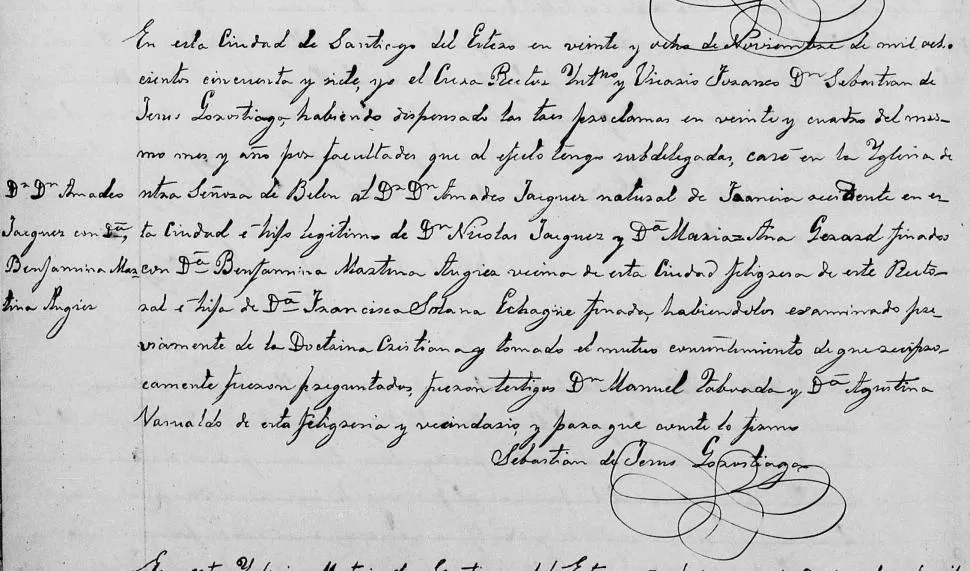 En esta Ciudad de Santiago del Estero en veinte y ocho de Noviembre de mil ocho-
cientos cincuenta y siete, yo el Cura Rector Int.no y Vicario Foraneo Dn Sebastian de
Jesus Gorostiaga, habiendo dispensado las tres proclamas en veinte y cuatro del mis-
mo mes, y año por facultades que al efecto tengo subdelegadas, casé en la Yglesia de
Dr Dn Amadeo
ntra Señora de Belen al Dr Dn Amadeo Jacques natural de Francia residente en es
Jacques con Da,
ta Ciudad é hijo legitimo de Dn Nicolas Jacques y Da Maria=Ana Gerard finados
Benjamina Mar=
con Da Benjamina Martina Augier vecina de esta Ciudad feligresa de este Recto-
tina Augier
ral é hija de Da Francisca Solana Echagüe finada, habiendolos examinado pre-
viamente de la Doctrina Cristiana y tomado el mutuo consentimiento de que recipro-
camente fueron preguntados, fueron testigos Dn Manuel Taboada y Da Agustina
de esta feligresia y vecindario, y para que conste lo firmo
Sebastian de Jesus Gorostiaga